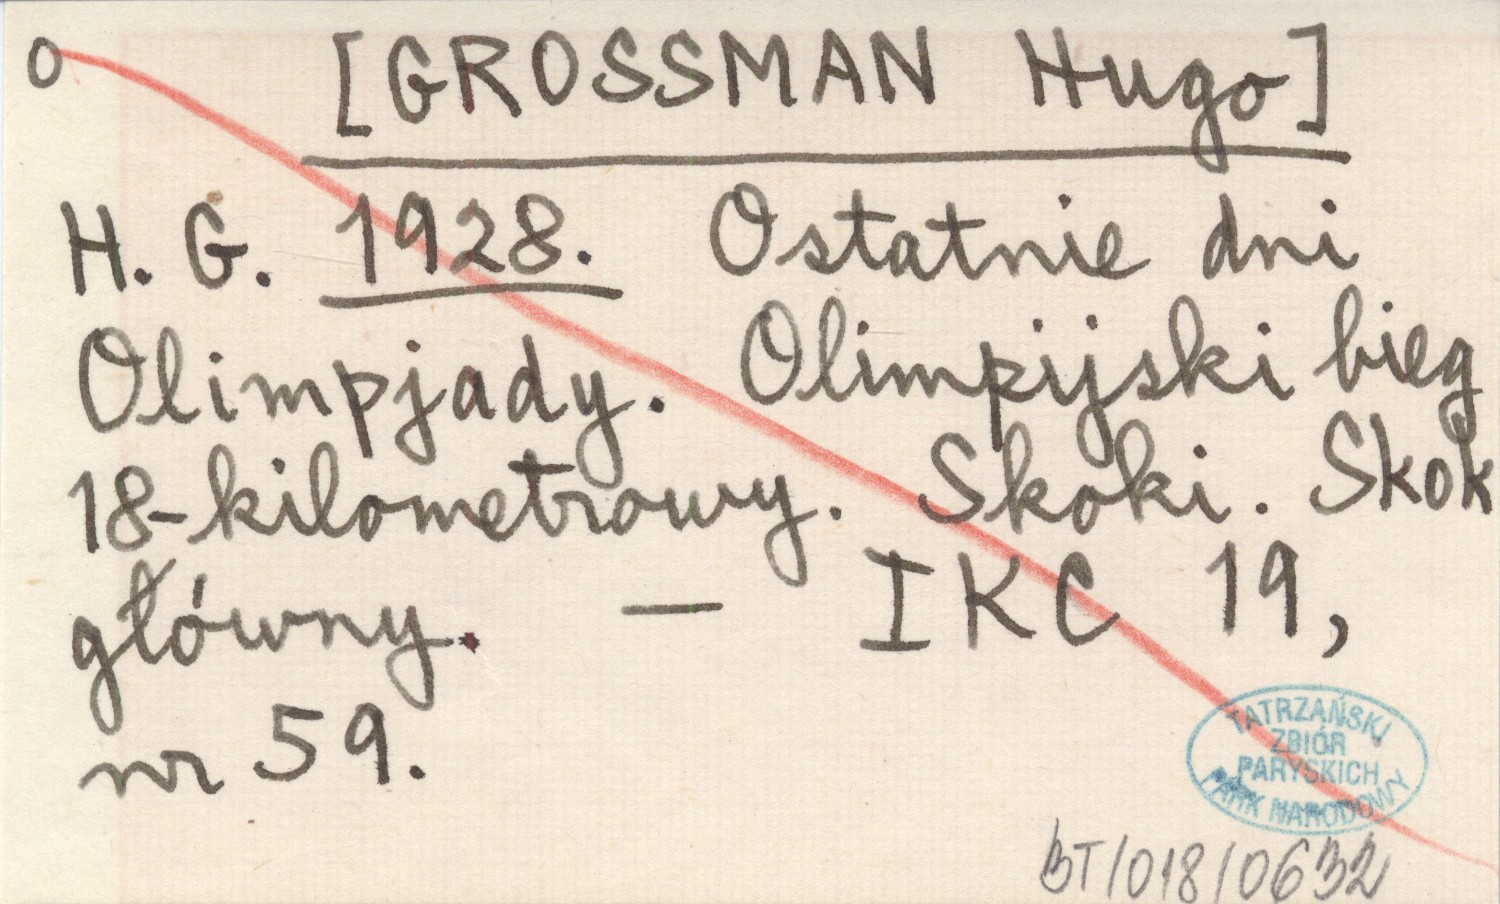 o [GROSSMAN Hugo]
H. G. 1928. Ostatnie dni
Olimpjady. Olimpijski bieg
18-kilometrowy. Skoki. Skok
główny. — IKC 19,
nr 59.
TATRZAŃSKI
ZBIÓR
PARYSKICH
PARK NARODOWY
BT/018/0632